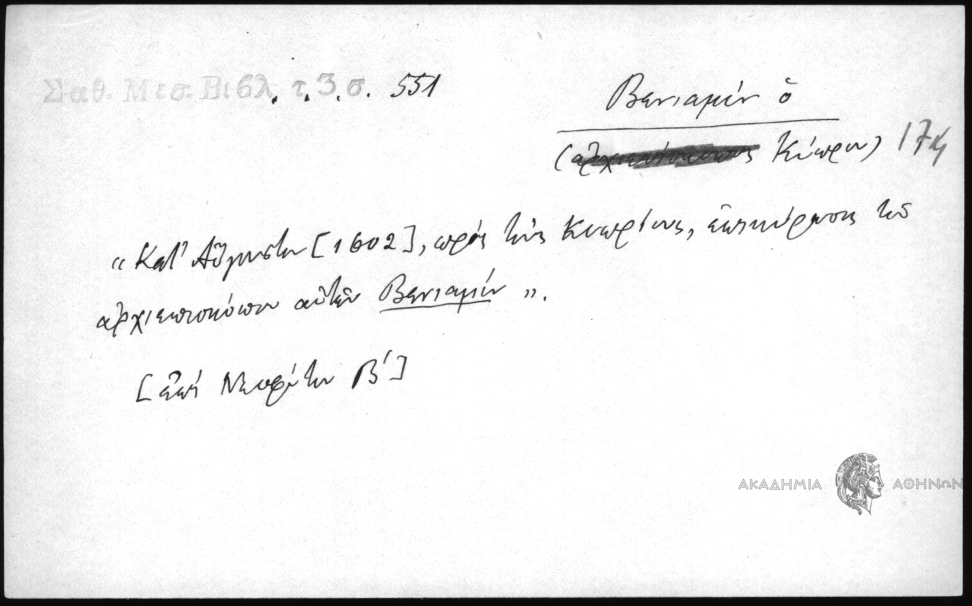 Σαθ. Μεσ. Βιβλ. τ. 3. σ. 551
Βενιαμίν ὁ
(ἀρχιεπίσκοπος Κύπρου) 174
« Κατ' Αὔγουστον [1602], πρὸς τοὺς Κυπρίους, ἐπικύρωσις τοῦ
ἀρχιεπισκόπου αὐτῶν Βενιαμίν ».
[ἐπὶ Νεοφύτου Β']
ΑΚΑΔΗΜΙΑ ΑΘΗΝΩΝ